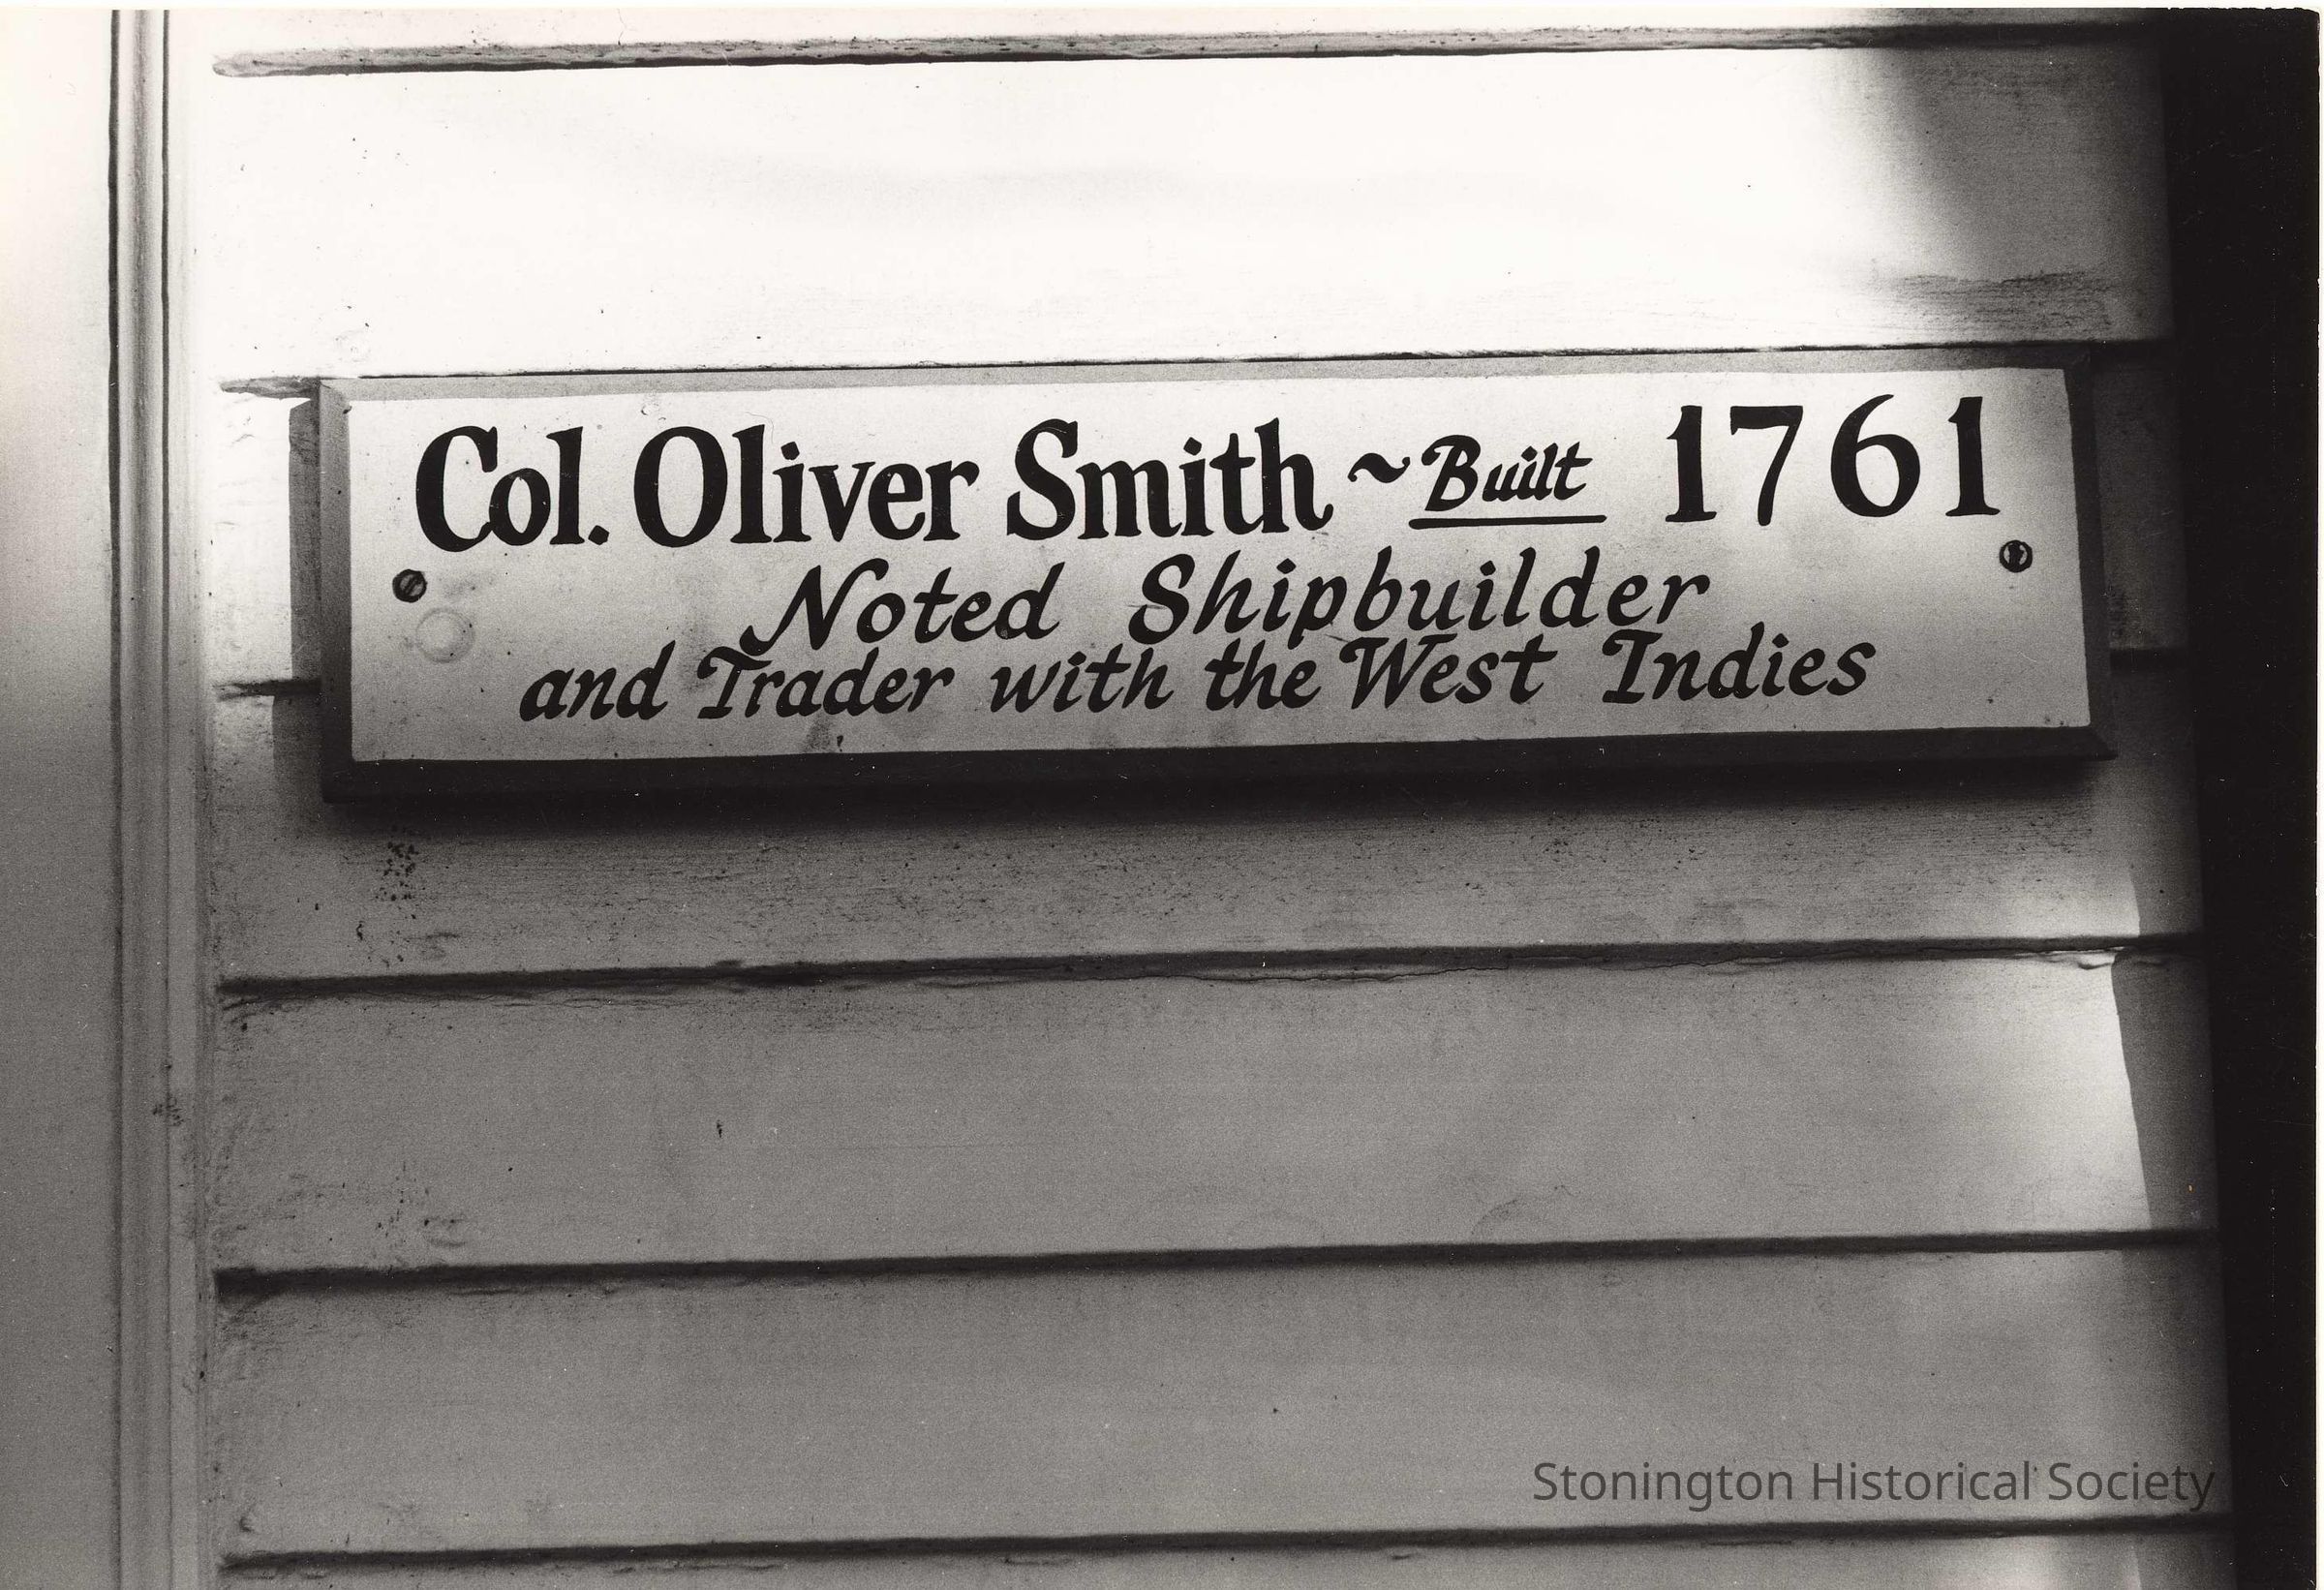 Col. Oliver Smith ~ Built 1761
Noted Shipbuilder
and Trader with the West Indies
Stonington Historical Society